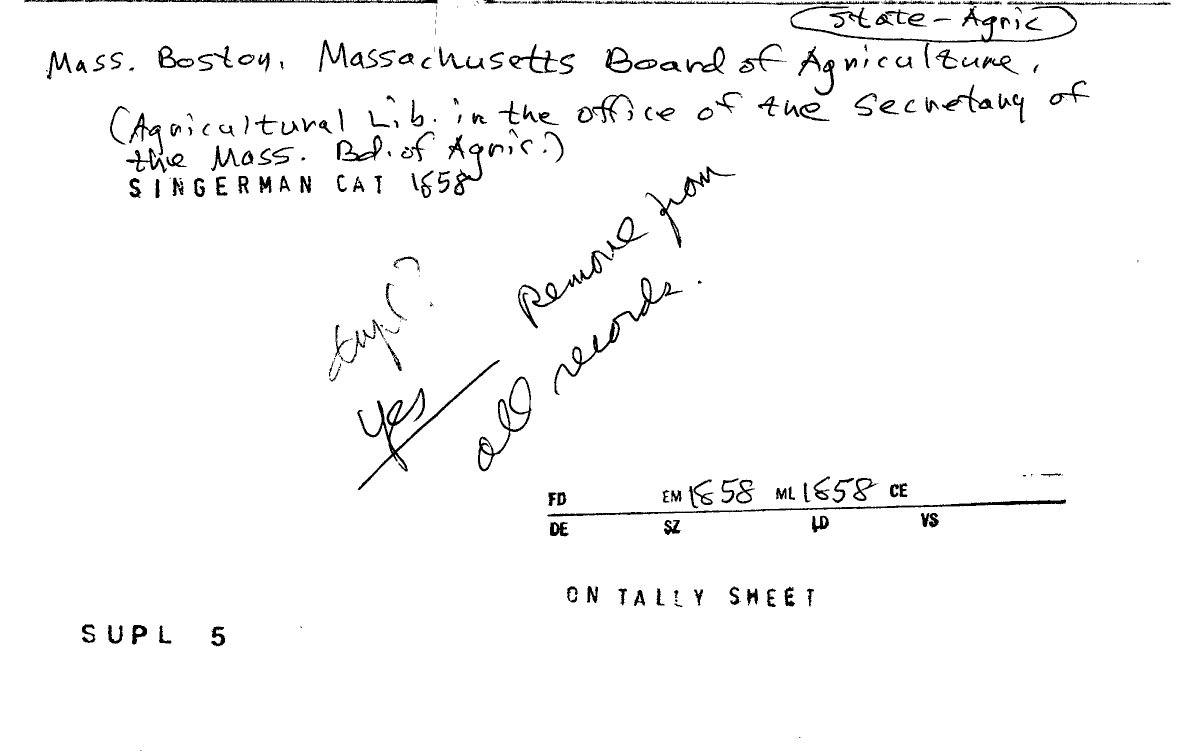 State-Agric
Mass. Boston. Massachusetts Board of Agriculture.
(Agricultural Lib. in the office of the Secretary of
the Mass. Bd. of Agric.)
SINGERMAN CAT 1858
dupl?
yes
Remove from
all records.
FD EM 1858 ML 1858 CE
DE SZ LD VS
ON TALLY SHEET
SUPL 5